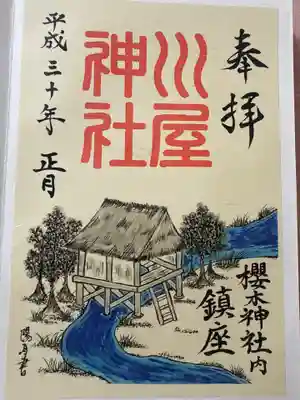 奉拝
川屋
神社
平成三十年 正月
櫻木神社内
鎮座